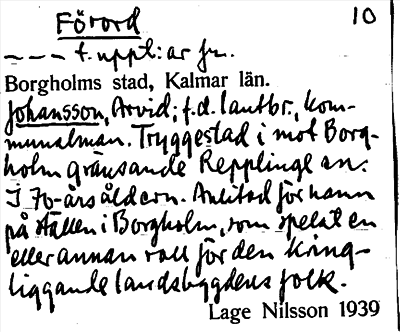 Förord 10
--- t. uppl:ar fr.
Borgholms stad, Kalmar län.
Johansson, Arvid; f.d. lantbr., kom-
munalman. Tryggestad i mot Borg-
holm gränsande Repplinge sn.
I 70-års åldern. Anlitad för namn
på ställen i Borgholm, som spelat en
eller annan roll för den kring-
liggande landsbygdens folk.
Lage Nilsson 1939